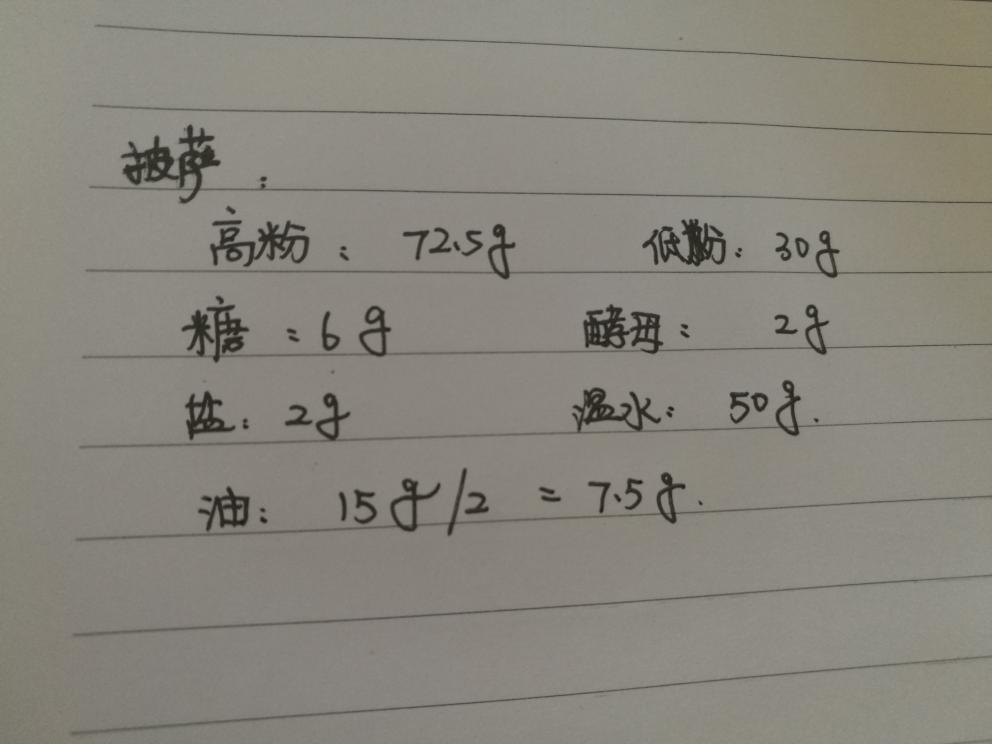 披萨:
高粉: 72.5g 低粉: 30g
糖: 6g 酵母: 2g
盐: 2g 温水: 50g.
油: 15g/2 = 7.5g.